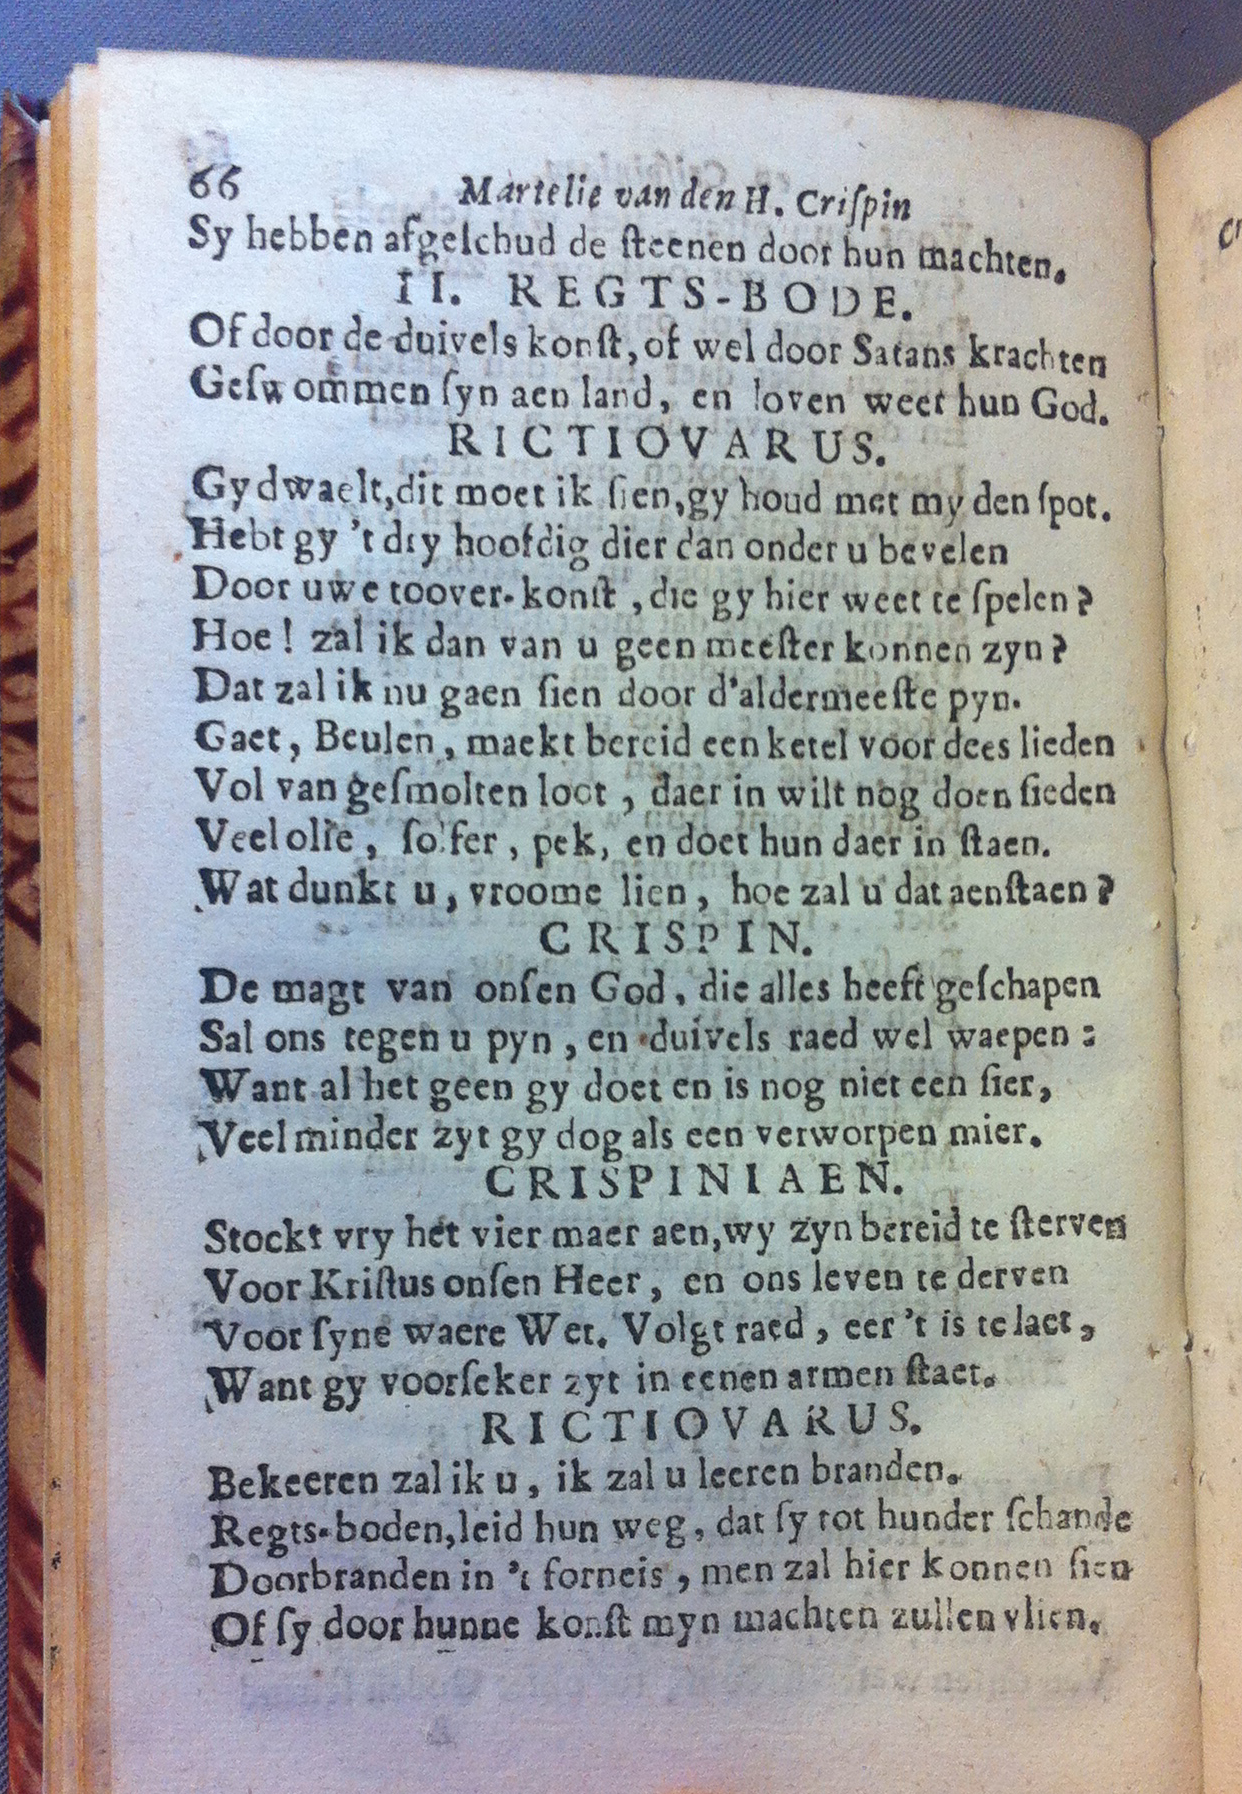 66 Martelie van den H. Criſpin
Sy hebben afgeſchud de ſteenen door hun machten.
II. REGTS-BODE.
Of door de duivels konſt, of wel door Satans krachten
Geſwommen ſyn aen land, en loven weer hun God.
RICTIOVARUS.
Gy dwaelt, dit moet ik ſien, gy houd met my den ſpot.
Hebt gy 't dry hoofdig dier dan onder u bevelen
Door uwe toover-konſt, die gy hier weet te ſpelen?
Hoe! zal ik dan van u geen meeſter konnen zyn?
Dat zal ik nu gaen ſien door d'aldermeeſte pyn.
Gaet, Beulen, maekt bereid een ketel voor dees lieden
Vol van geſmolten loot, daer in wilt nog doen ſieden
Veel olie, ſolfer, pek, en doet hun daer in ſtaen.
Wat dunkt u, vroome lien, hoe zal u dat aenſtaen?
CRISPIN.
De magt van onſen God, die alles heeft geſchapen
Sal ons tegen u pyn, en duivels raed wel waepen:
Want al het geen gy doet en is nog niet een ſier,
Veel minder zyt gy dog als een verworpen mier.
CRISPINIAEN.
Stockt vry het vier maer aen, wy zyn bereid te ſterven
Voor Kriſtus onſen Heer, en ons leven te derven
Voor ſyne waere Wet. Volgt raed, eer 't is te laet,
Want gy voorſeker zyt in eenen armen ſtaet.
RICTIOVARUS.
Bekeeren zal ik u, ik zal u leeren branden.
Regts-boden, leid hun weg, dat ſy tot hunder ſchande
Doorbranden in 't forneis, men zal hier konnen ſien
Of ſy door hunne konſt myn machten zullen vlien.